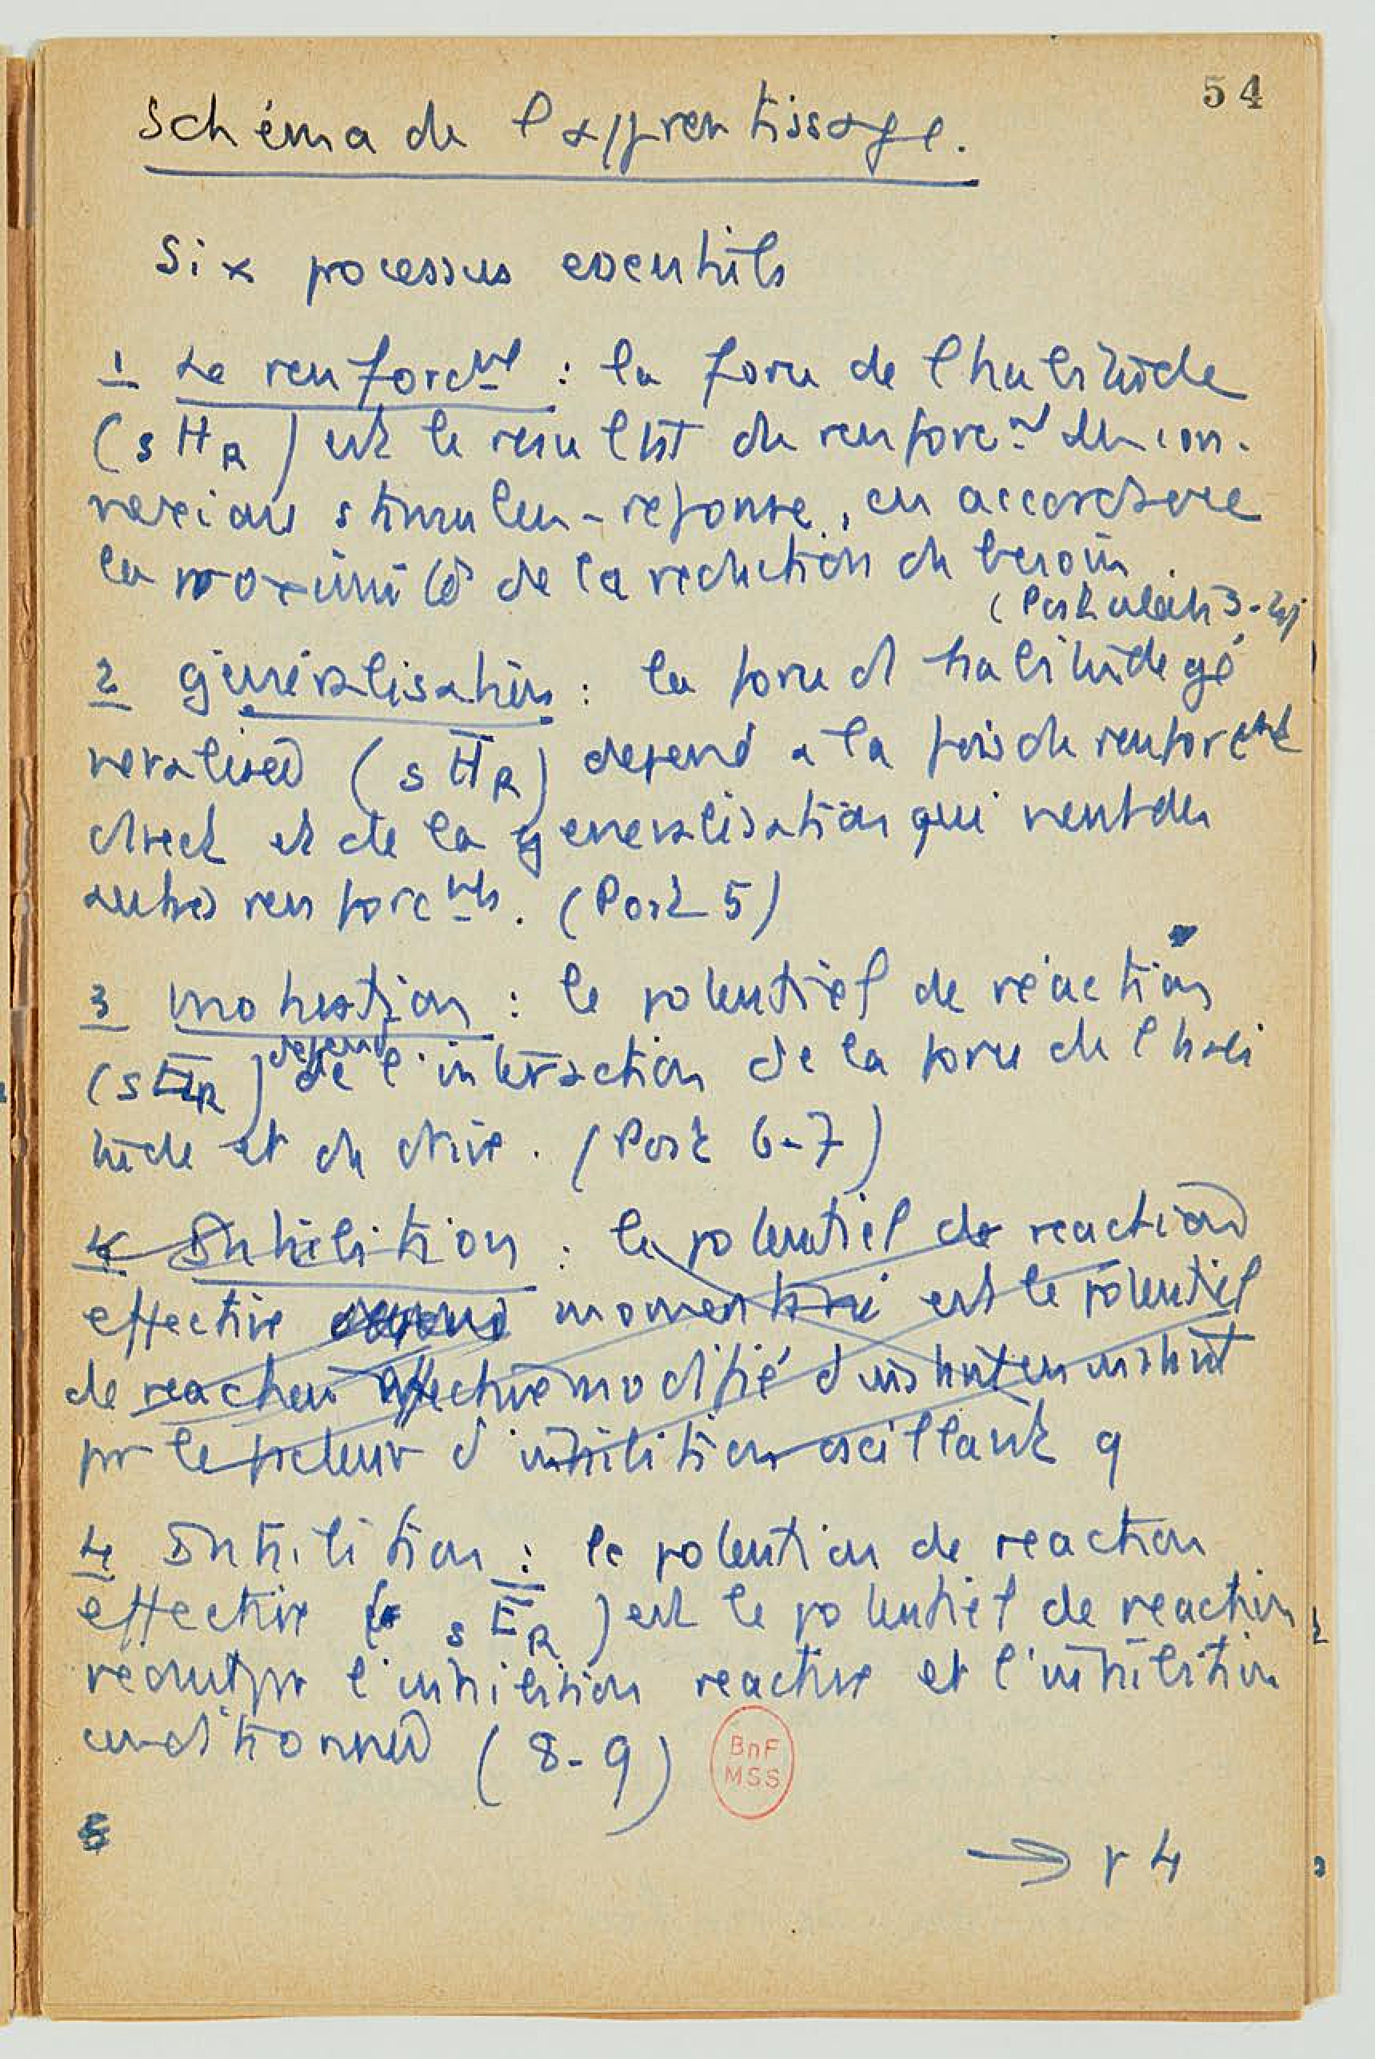 54
Schéma de l'apprentissage.
Six processus essentiels
1 Le renforcmt : la force de l'habitude
(sHR) est le resultat du renforcmt des con-
nexions stimulus-reponse, en accord avec
la proximité de la reduction du besoin.
(Postulats 3-4)
2 généralisation : la force d'habitude gé
neralisée (sH̅R) depend a la fois du renforcmt
direct et de la generalisation qui vient des
autres renforcmts. (Post 5)
3 motivation : le potentiel de réaction
(sER) depend de l'interaction de la force de l'habi
tude et du drive. (Post 6-7)
4 Inhibition : le potentiel de reaction
effective momentané est le potentiel
de reaction effective modifié d'instant en instant
par le facteur d'inhibition oscillante q
4 Inhibition : le potentiel de reaction
effective (sE̅R) est le potentiel de reaction
reduit par l'inhibition reactive et l'inhibition
conditionnée (8-9)
BnF
MSS
5
→ p 4